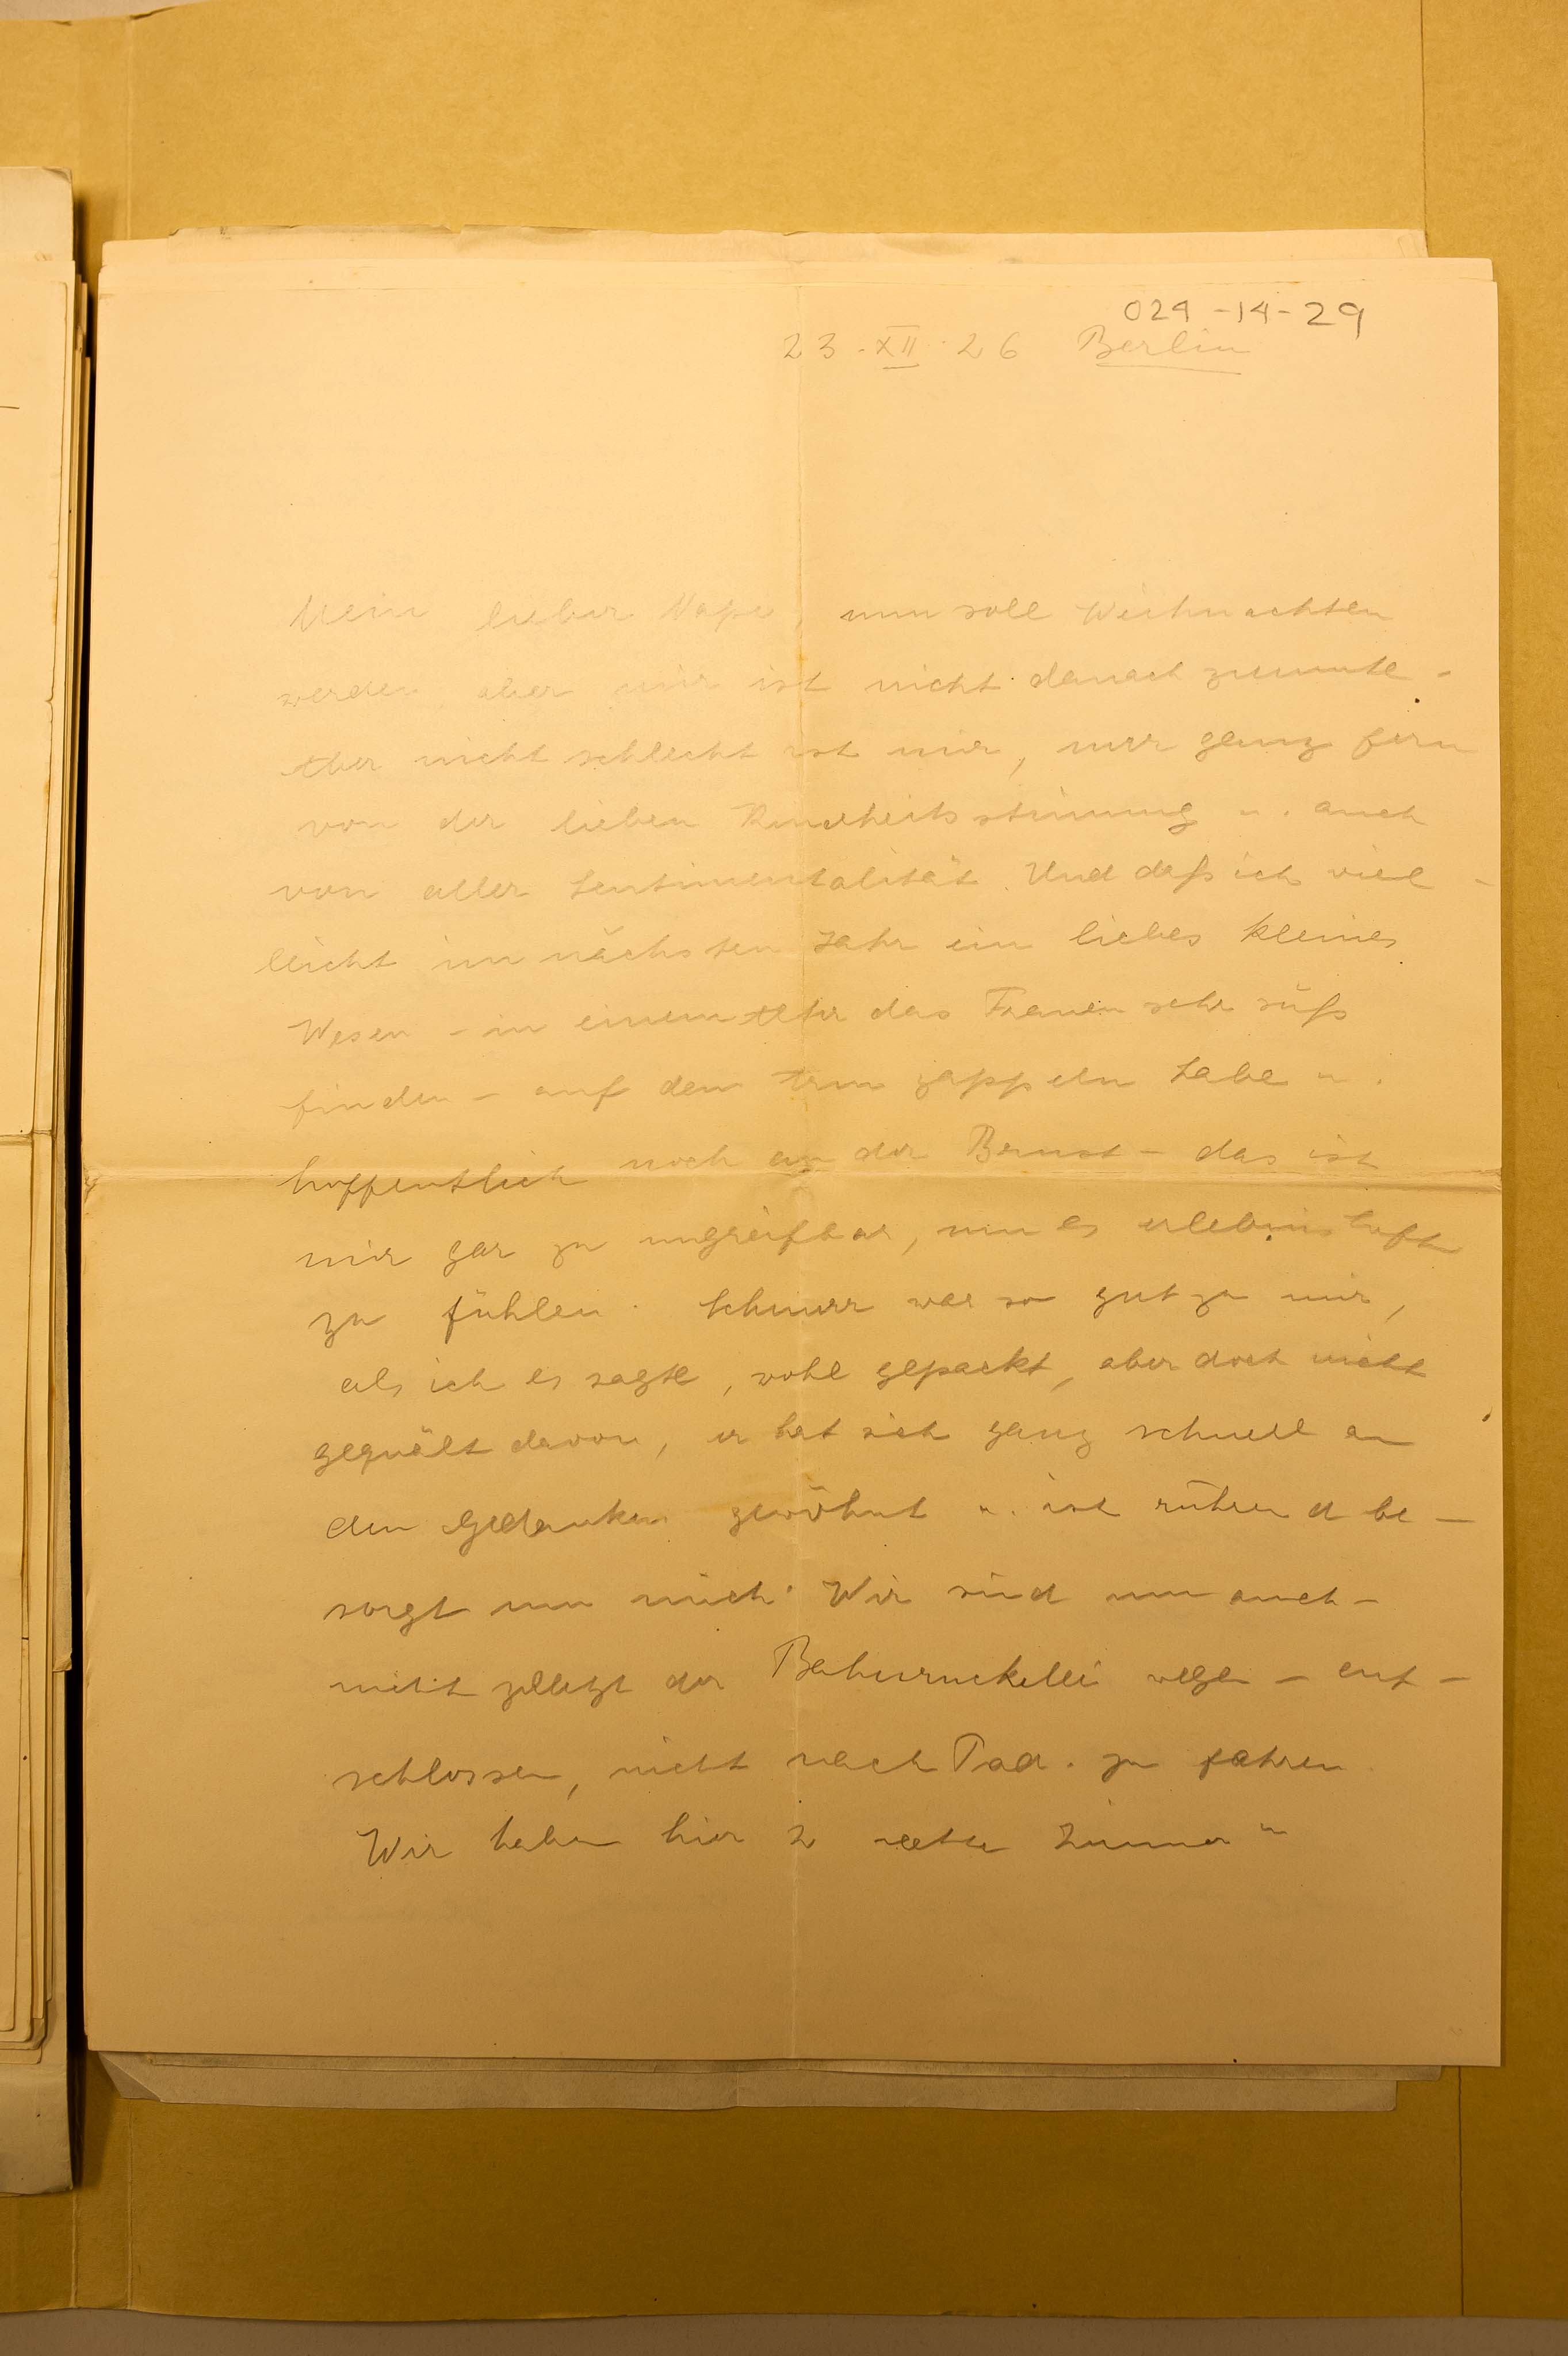 029-14-29
23.XII.26 Berlin
Mein lieber nun soll Weihnachten
werden, aber mir ist nicht danach zumute -
Aber nicht schlecht ist mir, nur ganz fern
von der lieben Kinderheitsstimmung u. auch
von aller Sentimentalität. Und daß ich viel-
leicht im nächsten Jahr ein liebes kleines
Wesen - in einem Alter das Frauen sehr süß
finden - auf dem Arm zappeln habe u.
hoffentlich noch an der Brust - das ist
mir gar zu ungreifbar, um es erlebnishaft
zu fühlen. Schnurr war so gut zu mir,
als ich es sagte, wohl gepackt, aber doch nicht
gequält davon, er hat sich ganz schnell an
den Gedanken gewöhnt u. ist rührend be-
sorgt um mich. Wir sind nun auch -
nicht zuletzt der Bahnruckelei wegen - ent-
schlossen, nicht nach Pad. zu fahren.
Wir haben hier 2 nette Zimmer u